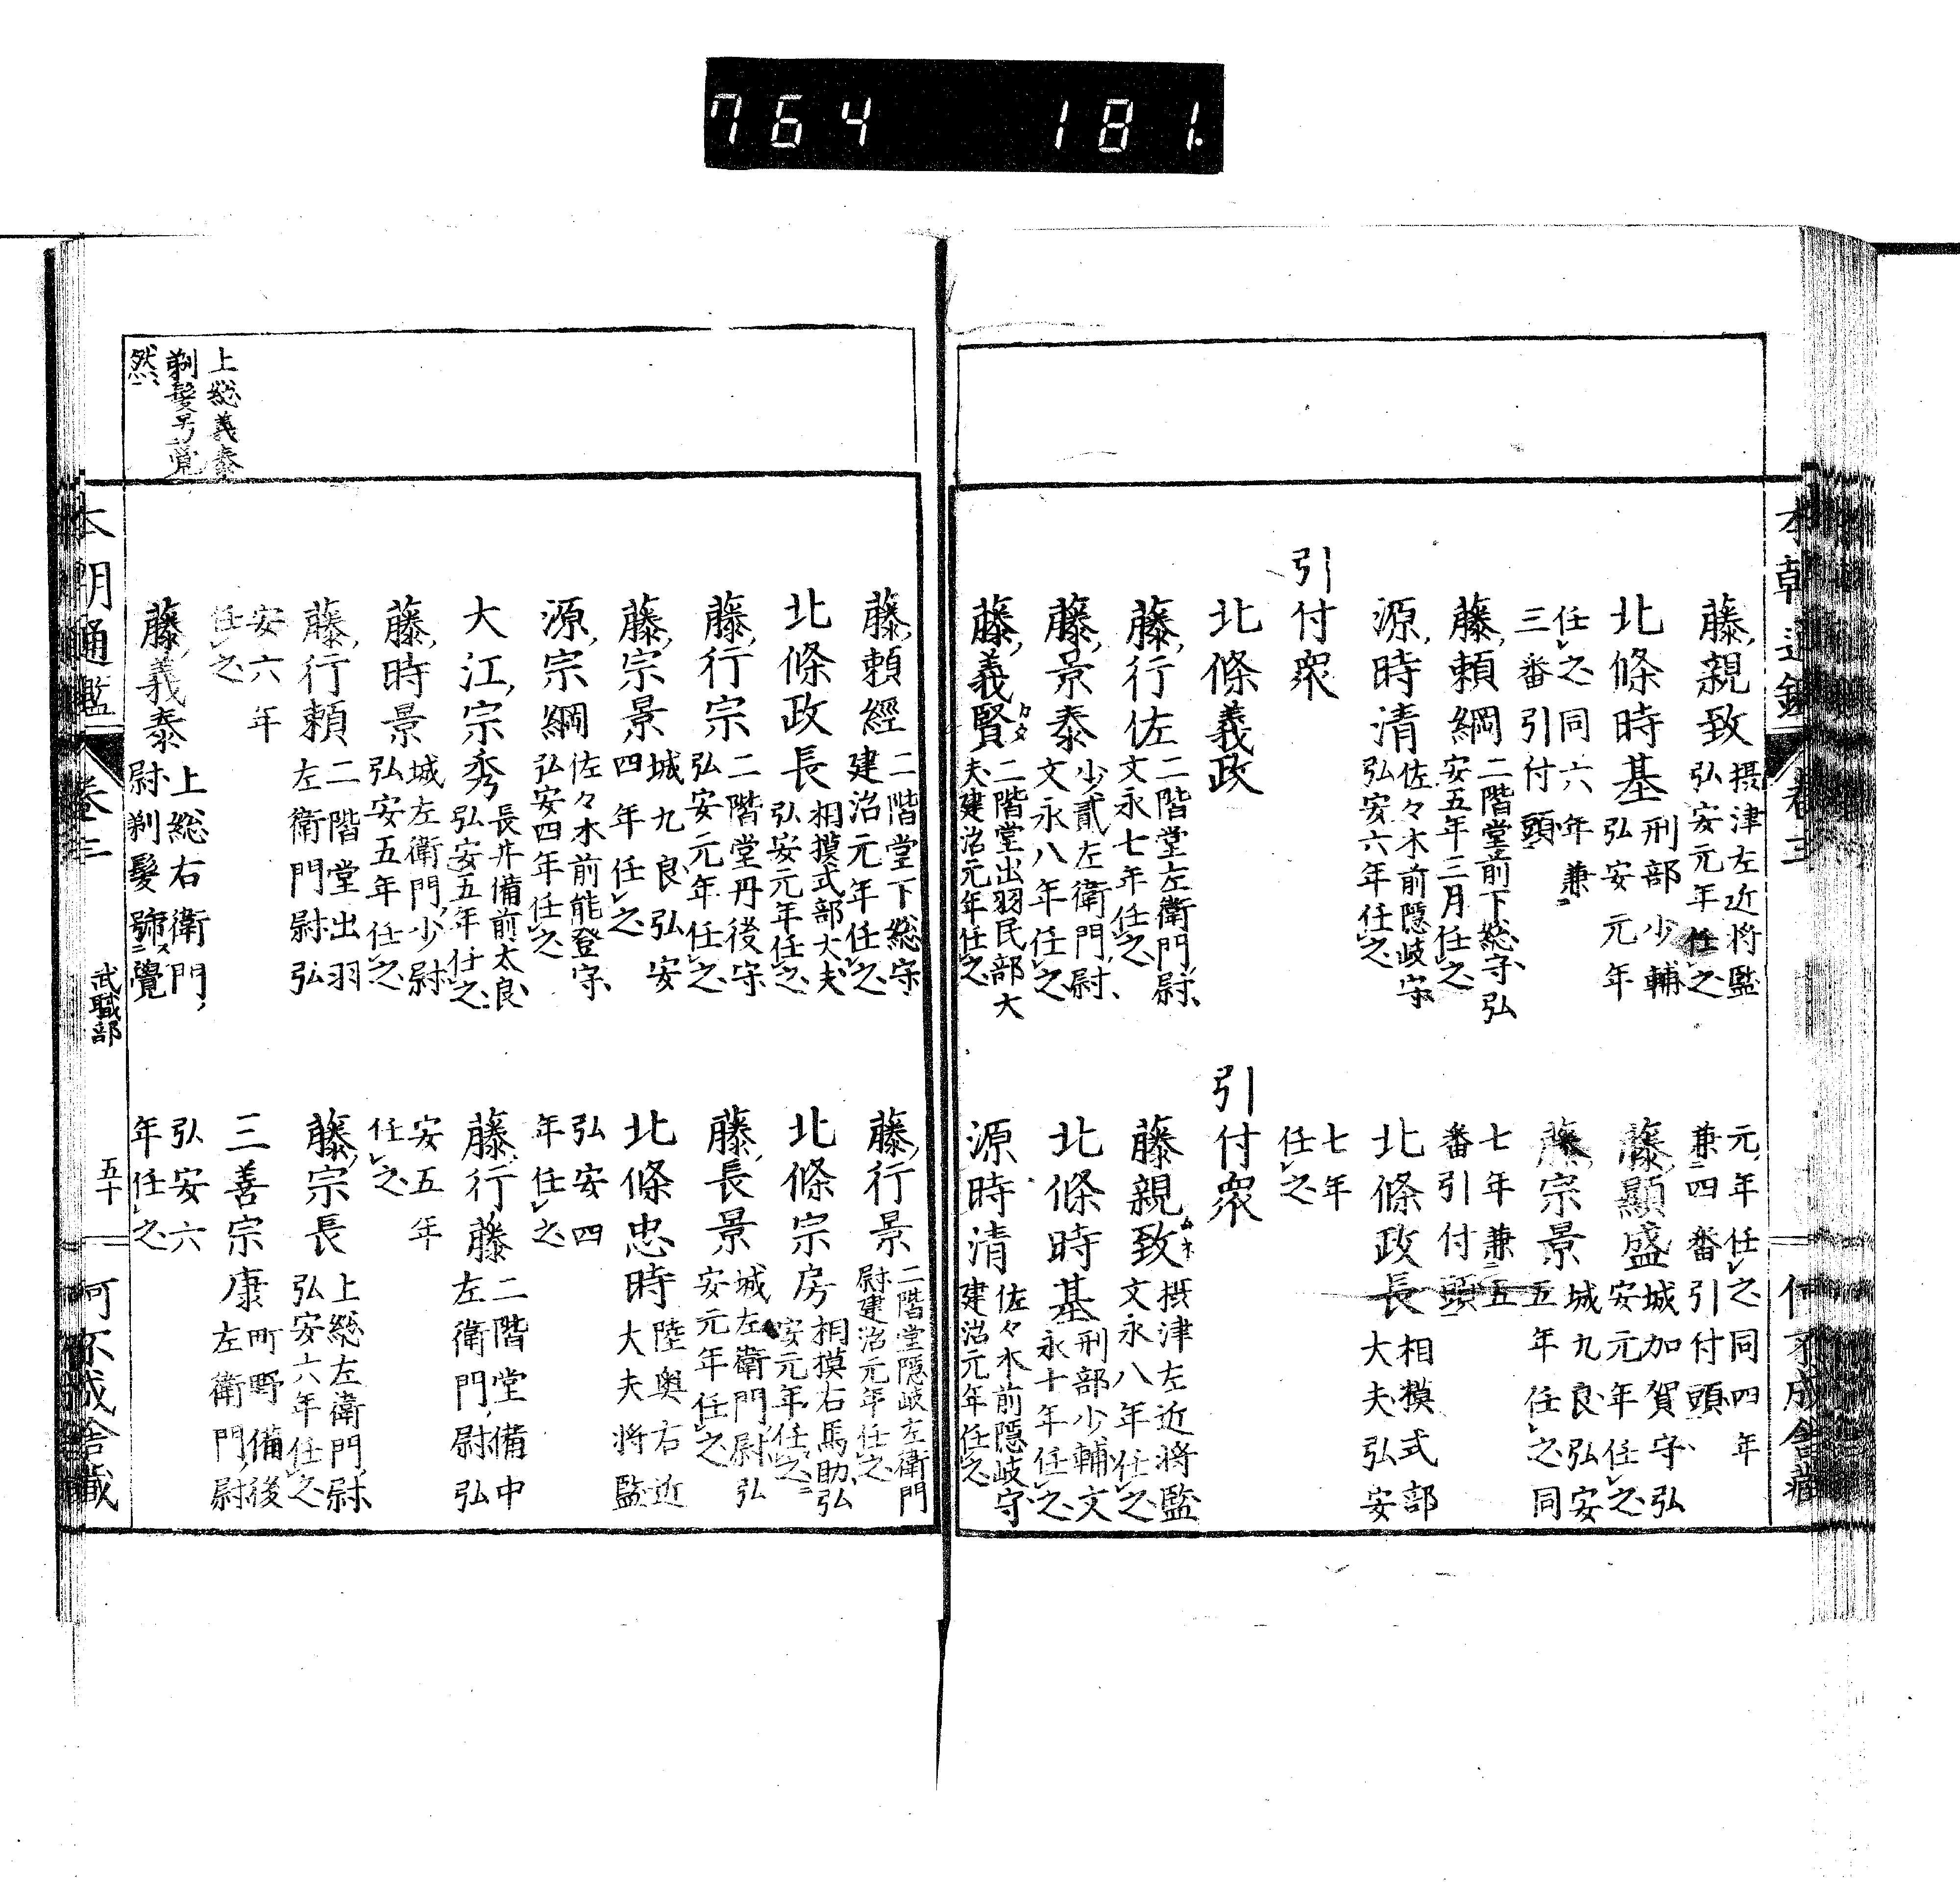 764 181.
藤親致 摂津左近将監
弘安元年任之
北條時基 刑部少輔
弘安元年
任之同六年兼
三番引付頭
藤頼綱 二階堂前下総守弘
安五年三月任之
源時清 佐々木前隠岐守
弘安六年任之
引付衆
北條義政
藤行佐 二階堂左衛門尉
文永七年任之
藤景泰 少貳左衛門尉
文永八年任之
藤義賢 カタ 二階堂出羽民部大
夫建治元年任之
元年任之同四年
兼四番引付頭
藤顯盛 城加賀守弘
安元年任之
藤宗景 城九良弘安
五年任之同
七年兼五
番引付頭
北條政長 相摸式部
大夫弘安
七年
任之
引付衆
藤親致 ムネ 摂津左近将監
文永八年任之
北條時基 刑部少輔文
永十年任之
源時清 佐々木前隠岐守
建治元年任之
藤頼經 二階堂下総守
建治元年任之
北條政長 相摸式部大夫
弘安元年任之
藤行宗 二階堂丹後守
弘安元年任之
藤宗景 城九良弘安
四年任之
源宗綱 佐々木前能登守
弘安四年任之
大江宗秀 長井備前太良
弘安五年任之
藤時景 城左衛門少尉
弘安五年任之
藤行頼 二階堂出羽
左衛門尉弘
安六年
任之
藤義泰 上総右衛門
尉剃髮號ス二覺
藤行景 二階堂隠岐左衛門
尉建治元年任之
北條宗房 相摸右馬助弘
安元年任之
藤長景 城左衛門尉弘
安元年任之
北條忠時 陸奥右近
大夫将監
弘安四
年任之
藤行藤 二階堂備中
左衛門尉弘
安五年
任之
藤宗長 上総左衛門尉
弘安六年任之
三善宗康 町野備後
左衛門尉
弘安六
年任之
上総義泰
剃髮号覚
然
本朝通鑑 卷三 武職部 五十
何不成舎藏